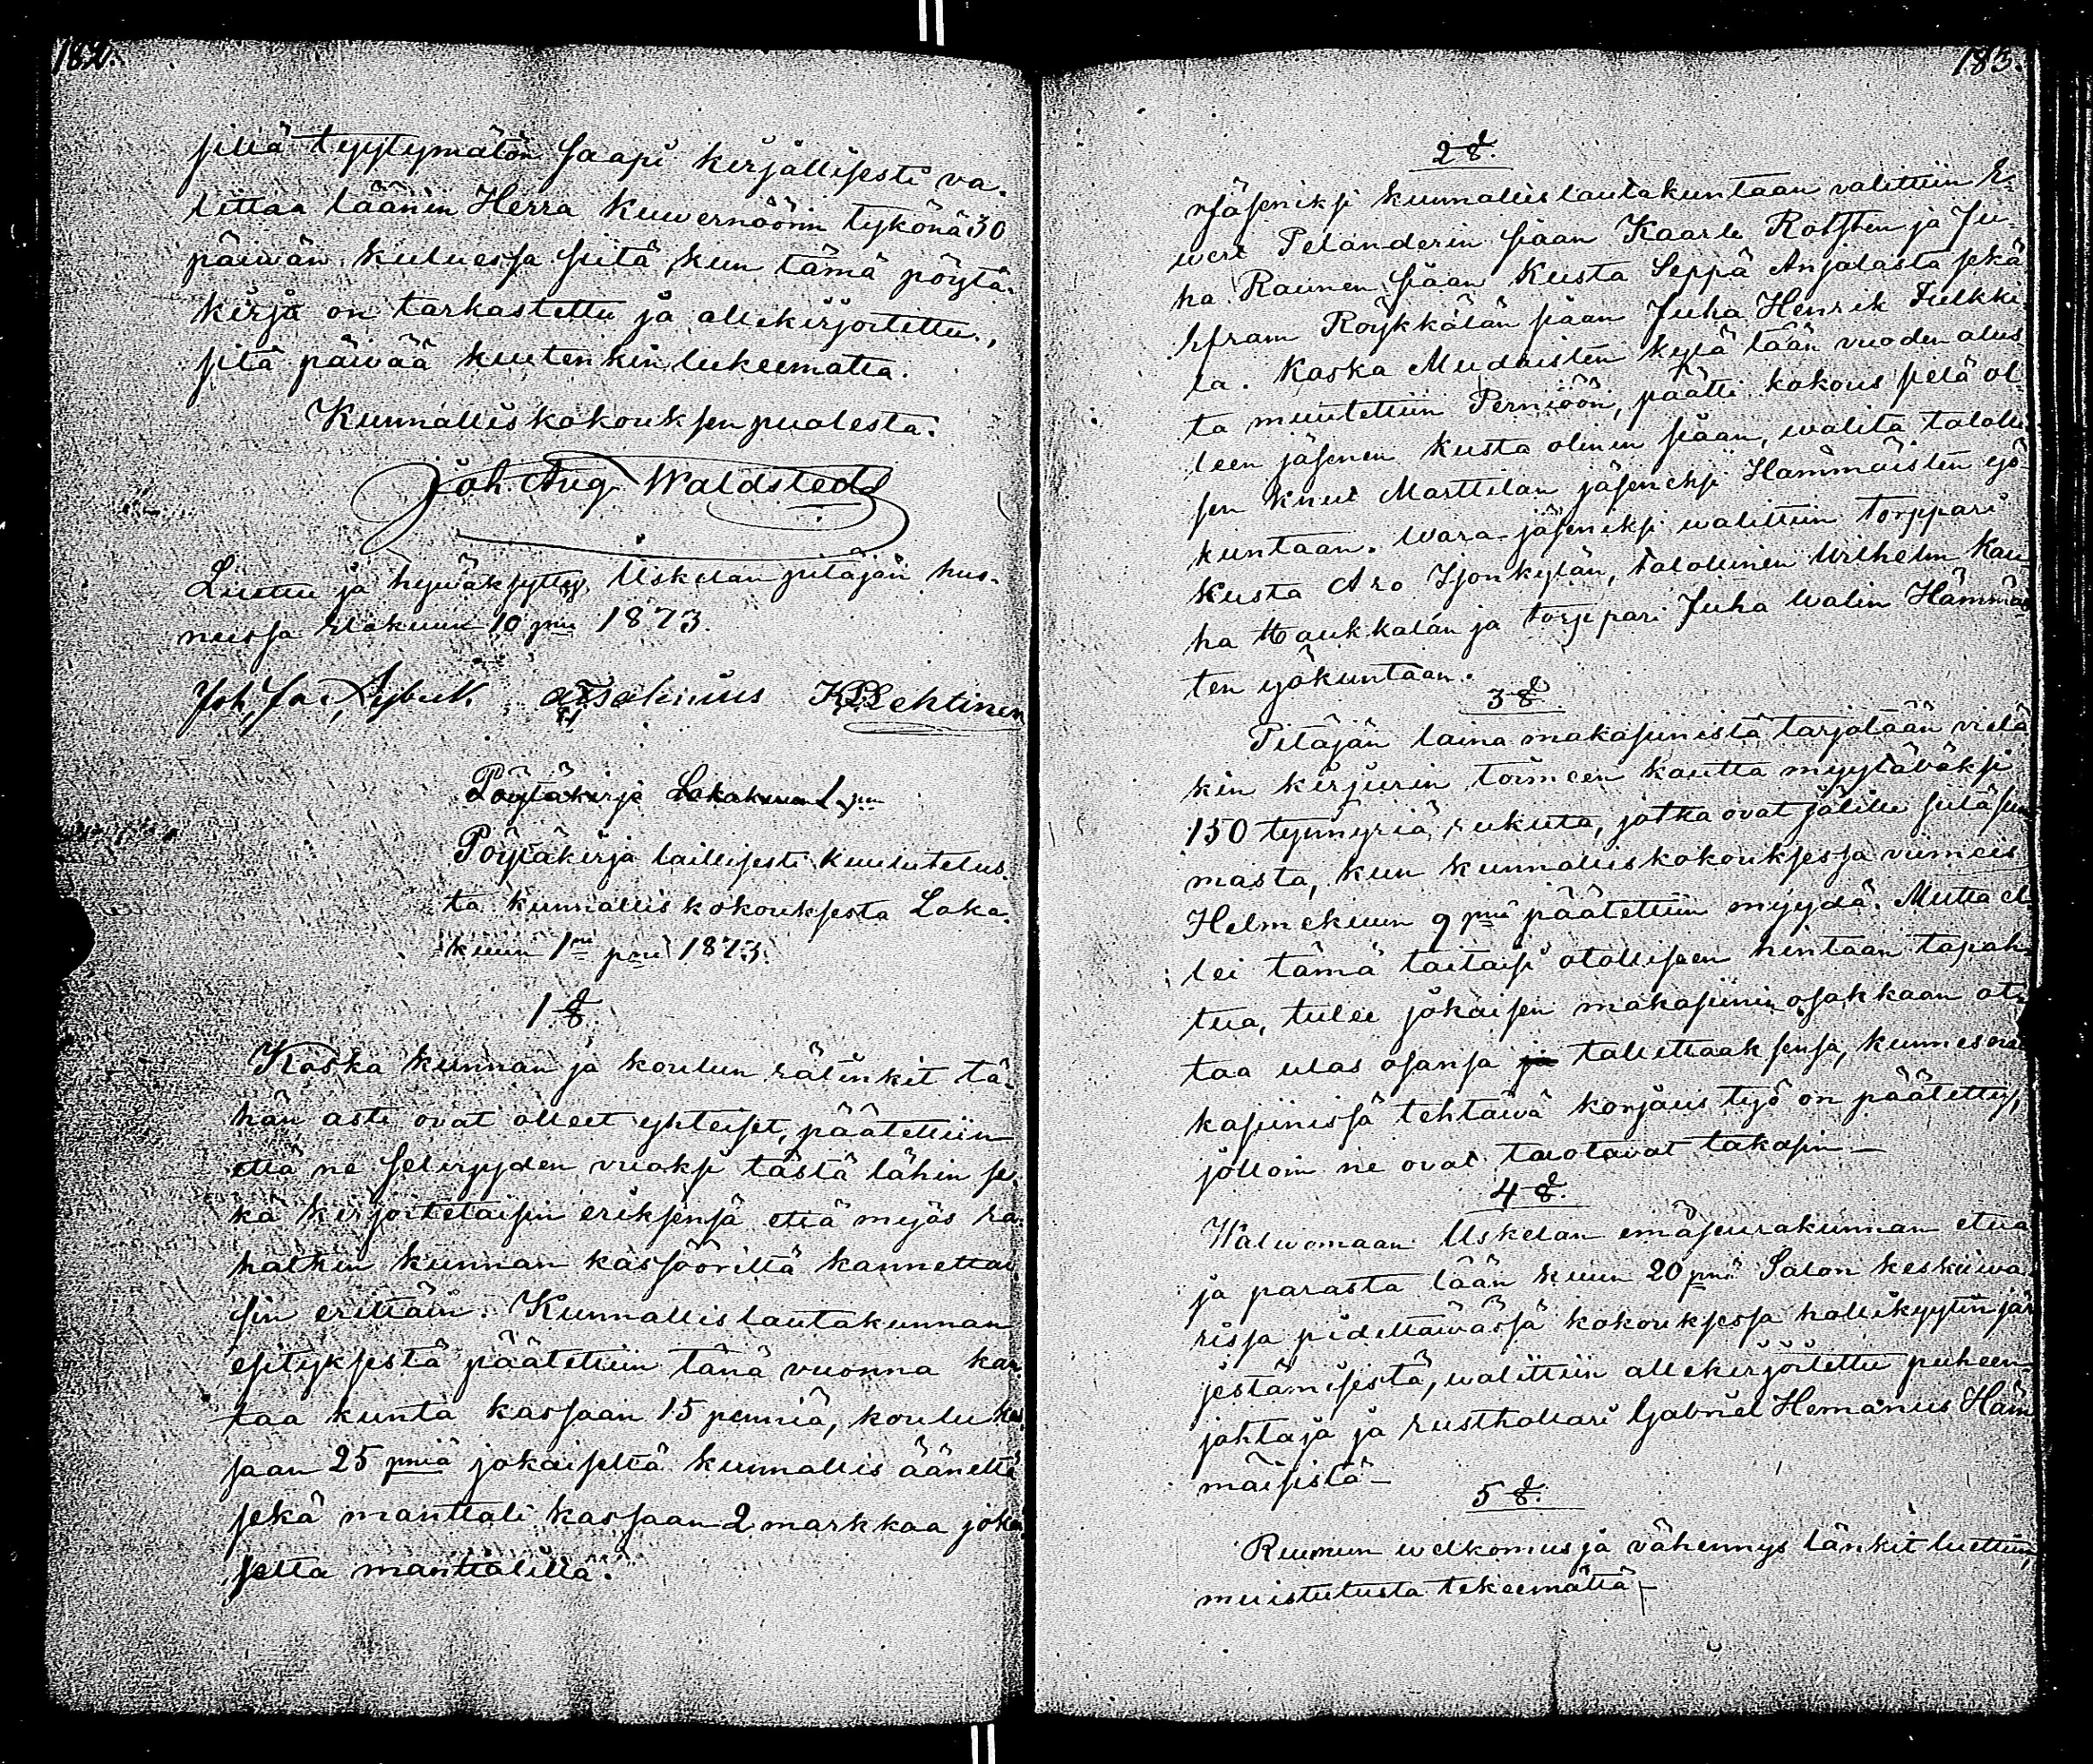 182.
siitä tyytymätön saapi kirjallisesti va-
littaa läänin Herra Kuvernöörin tykönä 30
päivän kuluessa siitä kun tämä pöytä-
kirja on tarkastettu ja allekirjoitettu,
sitä päivää kuitenkin lukeematta.
Kunnalliskokouksen puolesta:
Joh. Aug. Waldstedt
Luettu ja hyväksytty Uskelan pitäjän huo-
neessa Elokuun 10 pnä 1873.
Joh. Fr. Nybeck. Isak K Lehtinen
Pöytäkirja Lokakuun 1 pnä
Pöytäkirja laillisesti kuulutetus-
ta kunnallis kokouksesta Loka-
kuun 1nä pnä 1873.
1 §.
Koska kunnan ja koulun rätinkit tä-
hän asti ovat olleet yhteiset, päätettiin
että ne selvyyden vuoksi tästä lähin se-
kä kirjoitetaisiin eriksensä että myös ra-
hatkin kunnan kassööriltä kannettai-
siin erittäin. Kunnallislautakunnan
esityksestä päätettiin tänä vuonna kan-
taa kunta kassaan 15 penniä, koulu kas-
saan 25 pniä jokaiselta kunnallis ääneltä
sekä manttali kassaan 2 markkaa jokai-
selta manttalilta.
183.
2 §.
Jäseniksi kunnallislautakuntaan valittiin E-
wert Pelanderin siaan Kaarle Rotsten ja Ju-
ha Raunen siaan Kusta Seppä Anjalasta sekä
Efram Röykkälän siaan Juha Henrik Tulkki-
la. Koska Mudaisten kylä tään vuoden alus-
ta muutettiin Perniöön, päätti kokous sielä ol-
leen jäsenen Kusta olinin siaan, walita talolli-
sen Knut Marttilan jäseneksi Hämmäisten yö-
kuntaan. Wara-jäseniksi walittiin torppari
Kusta Aro Isonkylän, talollinen Wilhelm Kau-
ha Haukkalan ja torppari Juha Walin Hämmäis-
ten yökuntaan.
3 §.
Pitäjän laina makasiinista tarjotaan vielä
kin kirjurin toimeen kautta myytäväksi
150 tynnyriä rukiita, jotka ovat jälillä siitä sum-
masta, kun kunnalliskokouksessa viimeis
Helmekuun 9 pnä päätettiin myydä. Mutta el-
lei tämä taitaisi otolliseen hintaan tapah-
tua, tulee jokaisen makasiinin osakkaan ot-
taa ulos osansa ja tallettaaksensa, kunnes ma-
kasiinissä tehtävä korjaus työ on päätetty,
jolloin ne ovat tuotavat takasin –
4 §.
Walwomaan Uskelan emäseurakunnan etua
ja parasta tään kuun 20 pnä Salon keskiiva-
rissa pidettäwässä kokouksessa hollikyytin jär-
jestämisestä, walittiin allekirjoitettu puheen-
johtaja ja rusthollari Gabriel Hemanus Häm-
mäisistä –
5 §.
Ruunun welkomus ja vähennys länkit luettiin,
muistutusta tekeemättä –